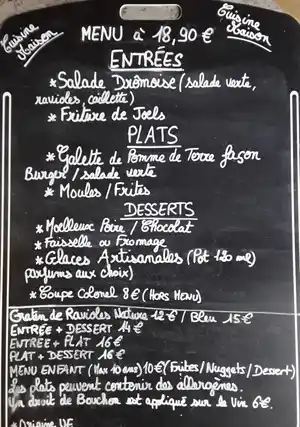 Cuisine
Maison
Cuisine
Maison
MENU à 18,90 €
ENTRÉES
* Salade Drômoise (salade verte,
ravioles, caillette)
* Friture de Joels
PLATS
* Galette de Pomme de Terre façon
Burger / salade verte
* Moules / Frites
DESSERTS
* Moelleux Poire / Chocolat
* Faisselle ou Fromage
* Glaces Artisanales (Pot 180 ml)
parfums aux choix)
* Coupe Colonel 8 € (HORS MENU)
Gratin de Ravioles Nature 12 € / Bleu 15 €
ENTRÉE + DESSERT 14 €
ENTRÉE + PLAT 16 €
PLAT + DESSERT 16 €
MENU ENFANT (Max 10 ans) 10 € (Frites / Nuggets / Dessert)
Les plats peuvent contenir des allergènes.
Un droit de Bouchon est appliqué sur le Vin 6 €.
* Origine UE